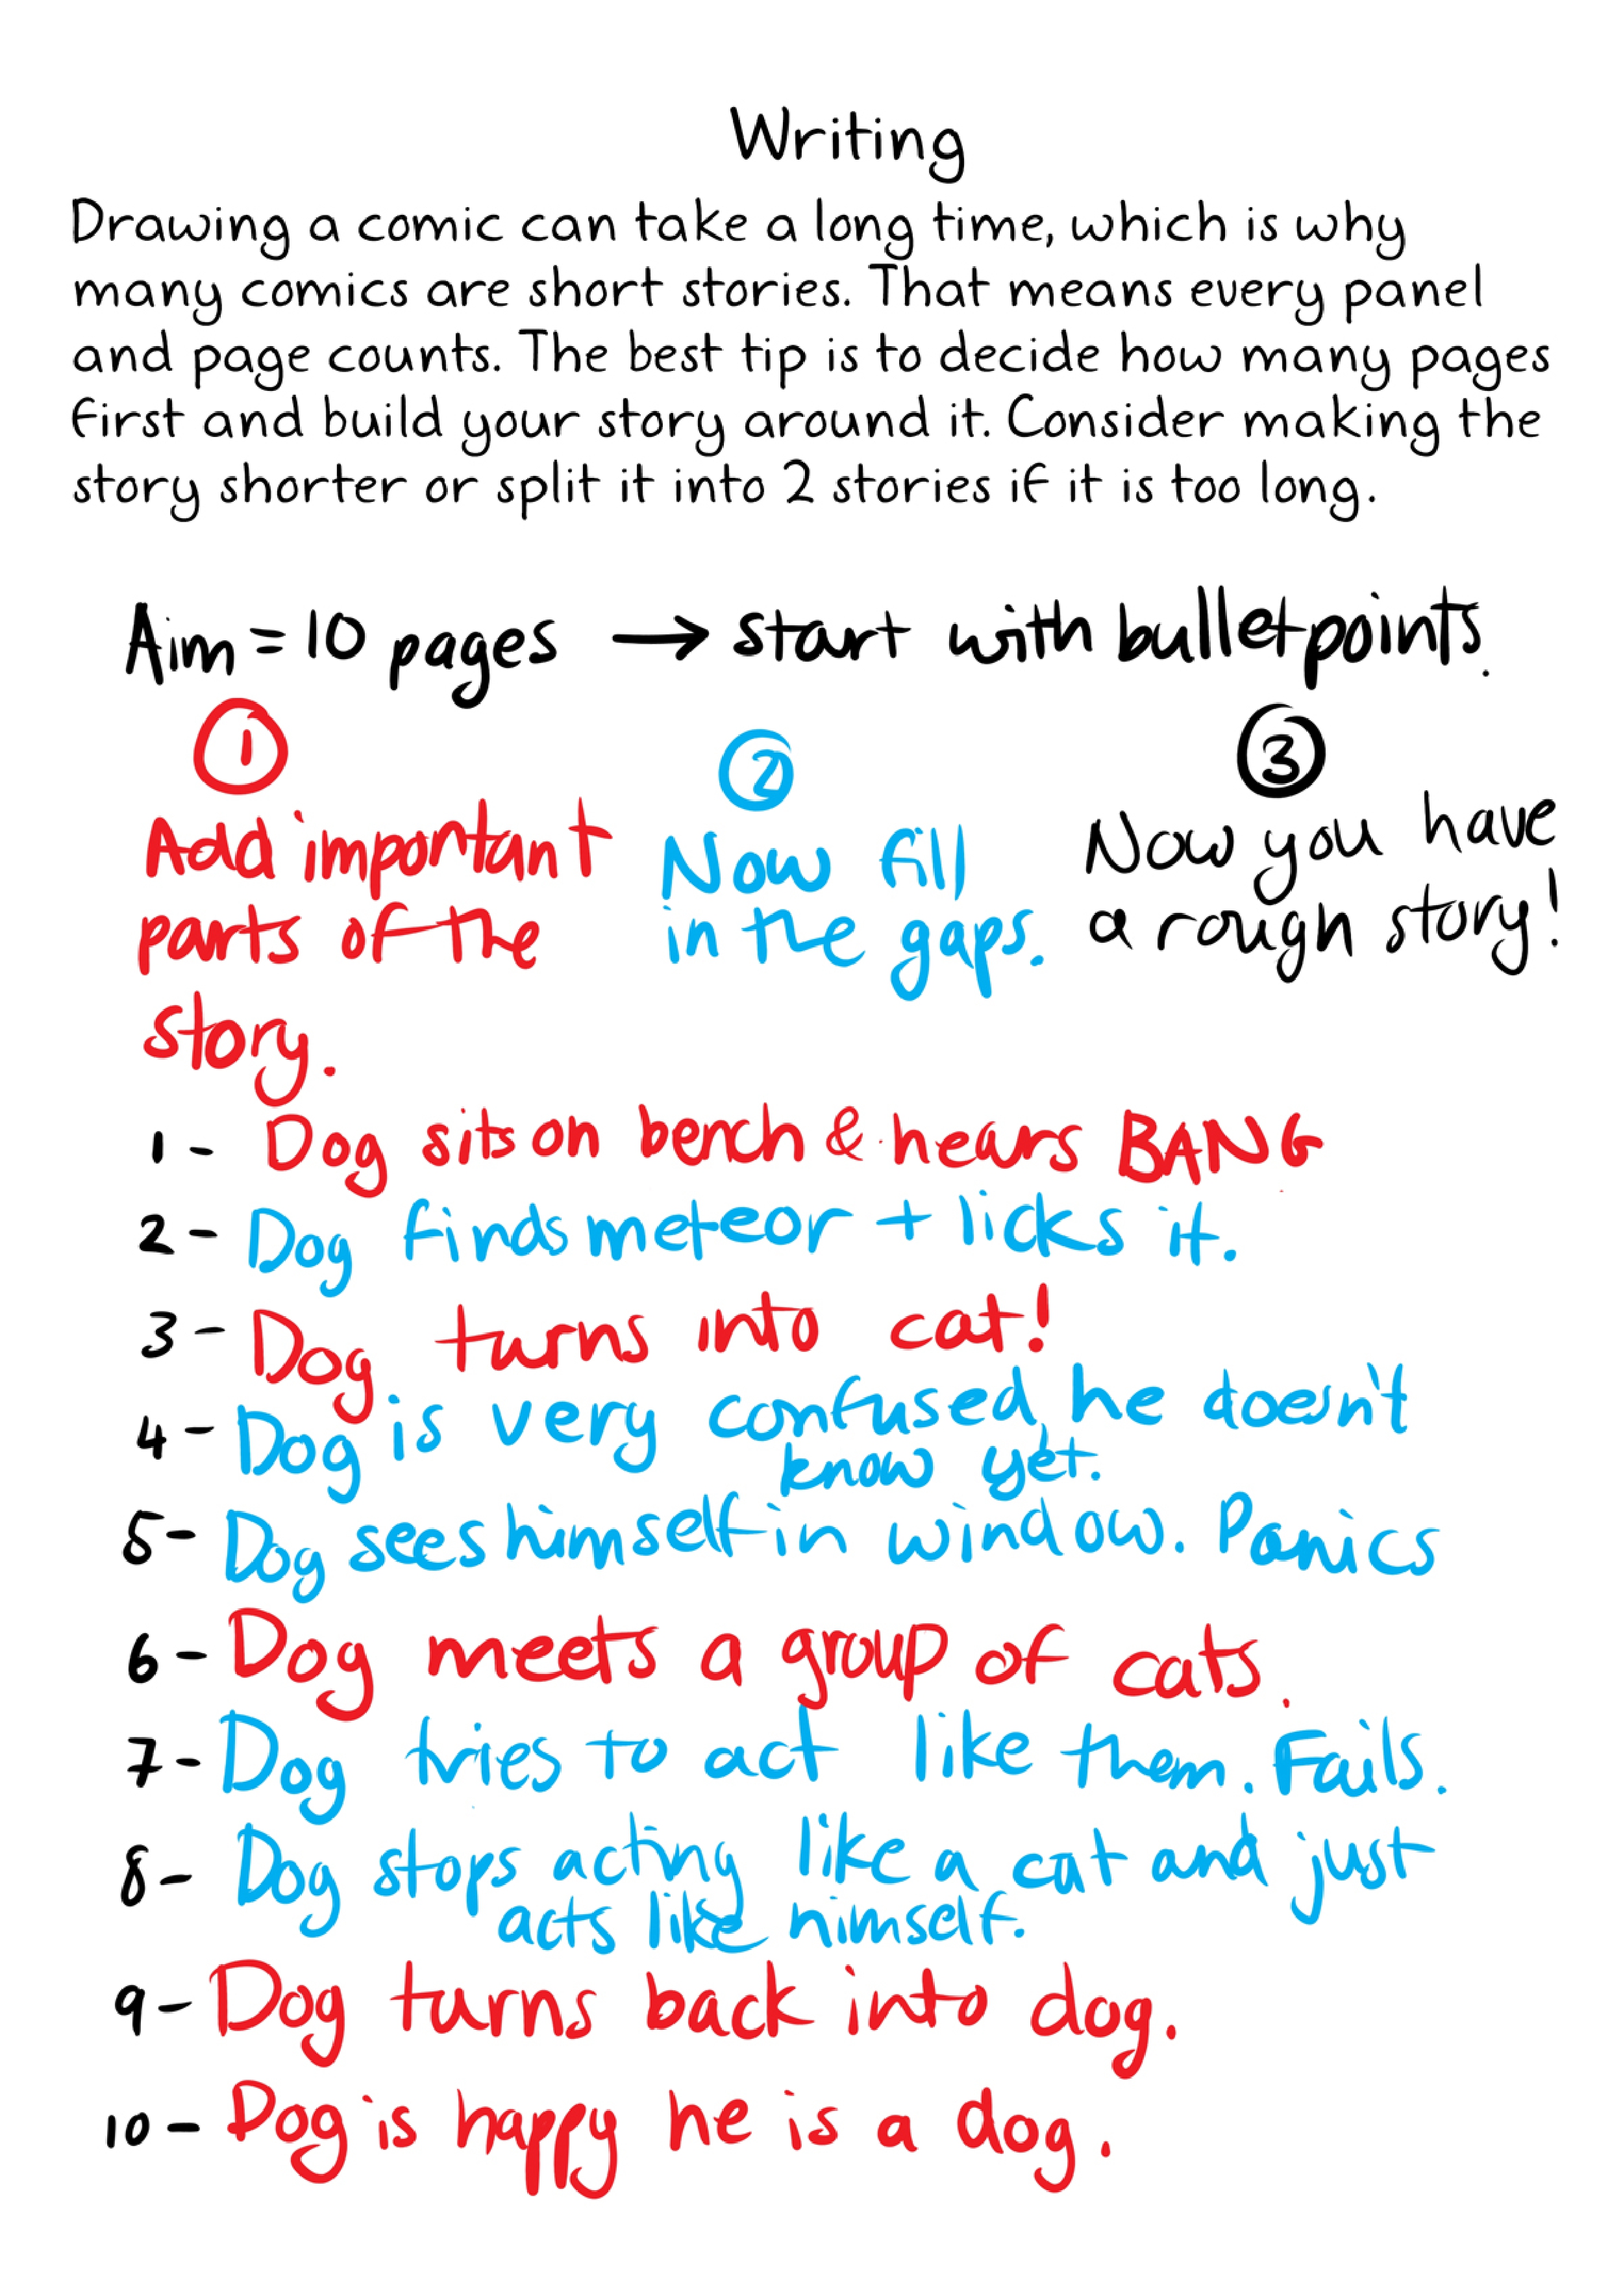 Writing
Drawing a comic can take a long time, which is why
many comics are short stories. That means every panel
and page counts. The best tip is to decide how many pages
first and build your story around it. Consider making the
story shorter or split it into 2 stories if it is too long.
Aim = 10 pages → start with bulletpoints.
1
Add important
parts of the
story.
2
Now fill
in the gaps.
3
Now you have
a rough story!
1 - Dog sits on bench & hears BANG
2 - Dog finds meteor + licks it.
3 - Dog turns into cat!
4 - Dog is very confused, he doesn't
know yet.
5 - Dog sees himself in window. Panics
6 - Dog meets a group of cats.
7 - Dog tries to act like them. Fails.
8 - Dog stops acting like a cat and just
acts like himself.
9 - Dog turns back into dog.
10 - Dog is happy he is a dog.